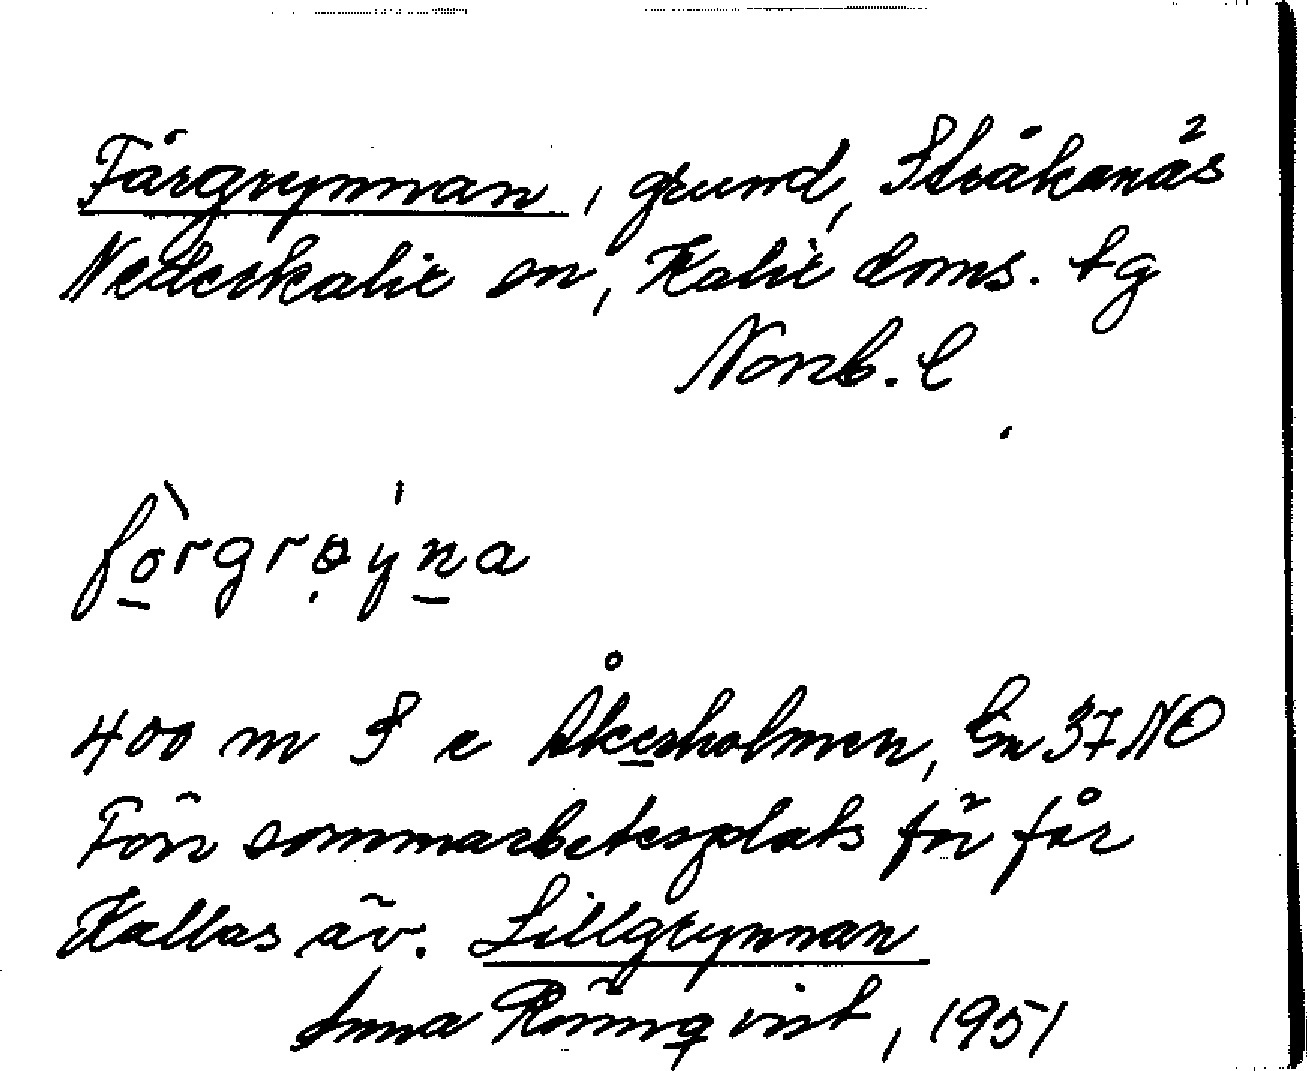 Fårgrynnan, grund, Stråkanäs²
Nederkalix sn, Kalix doms. tg
Norrb. l
fòrgrøýna
400 m S e Åkerholmen, En 37 NO
Förr sommarbetesplats för får
Kallas äv. Lillgrynnan
Anna Rönnqvist, 1951